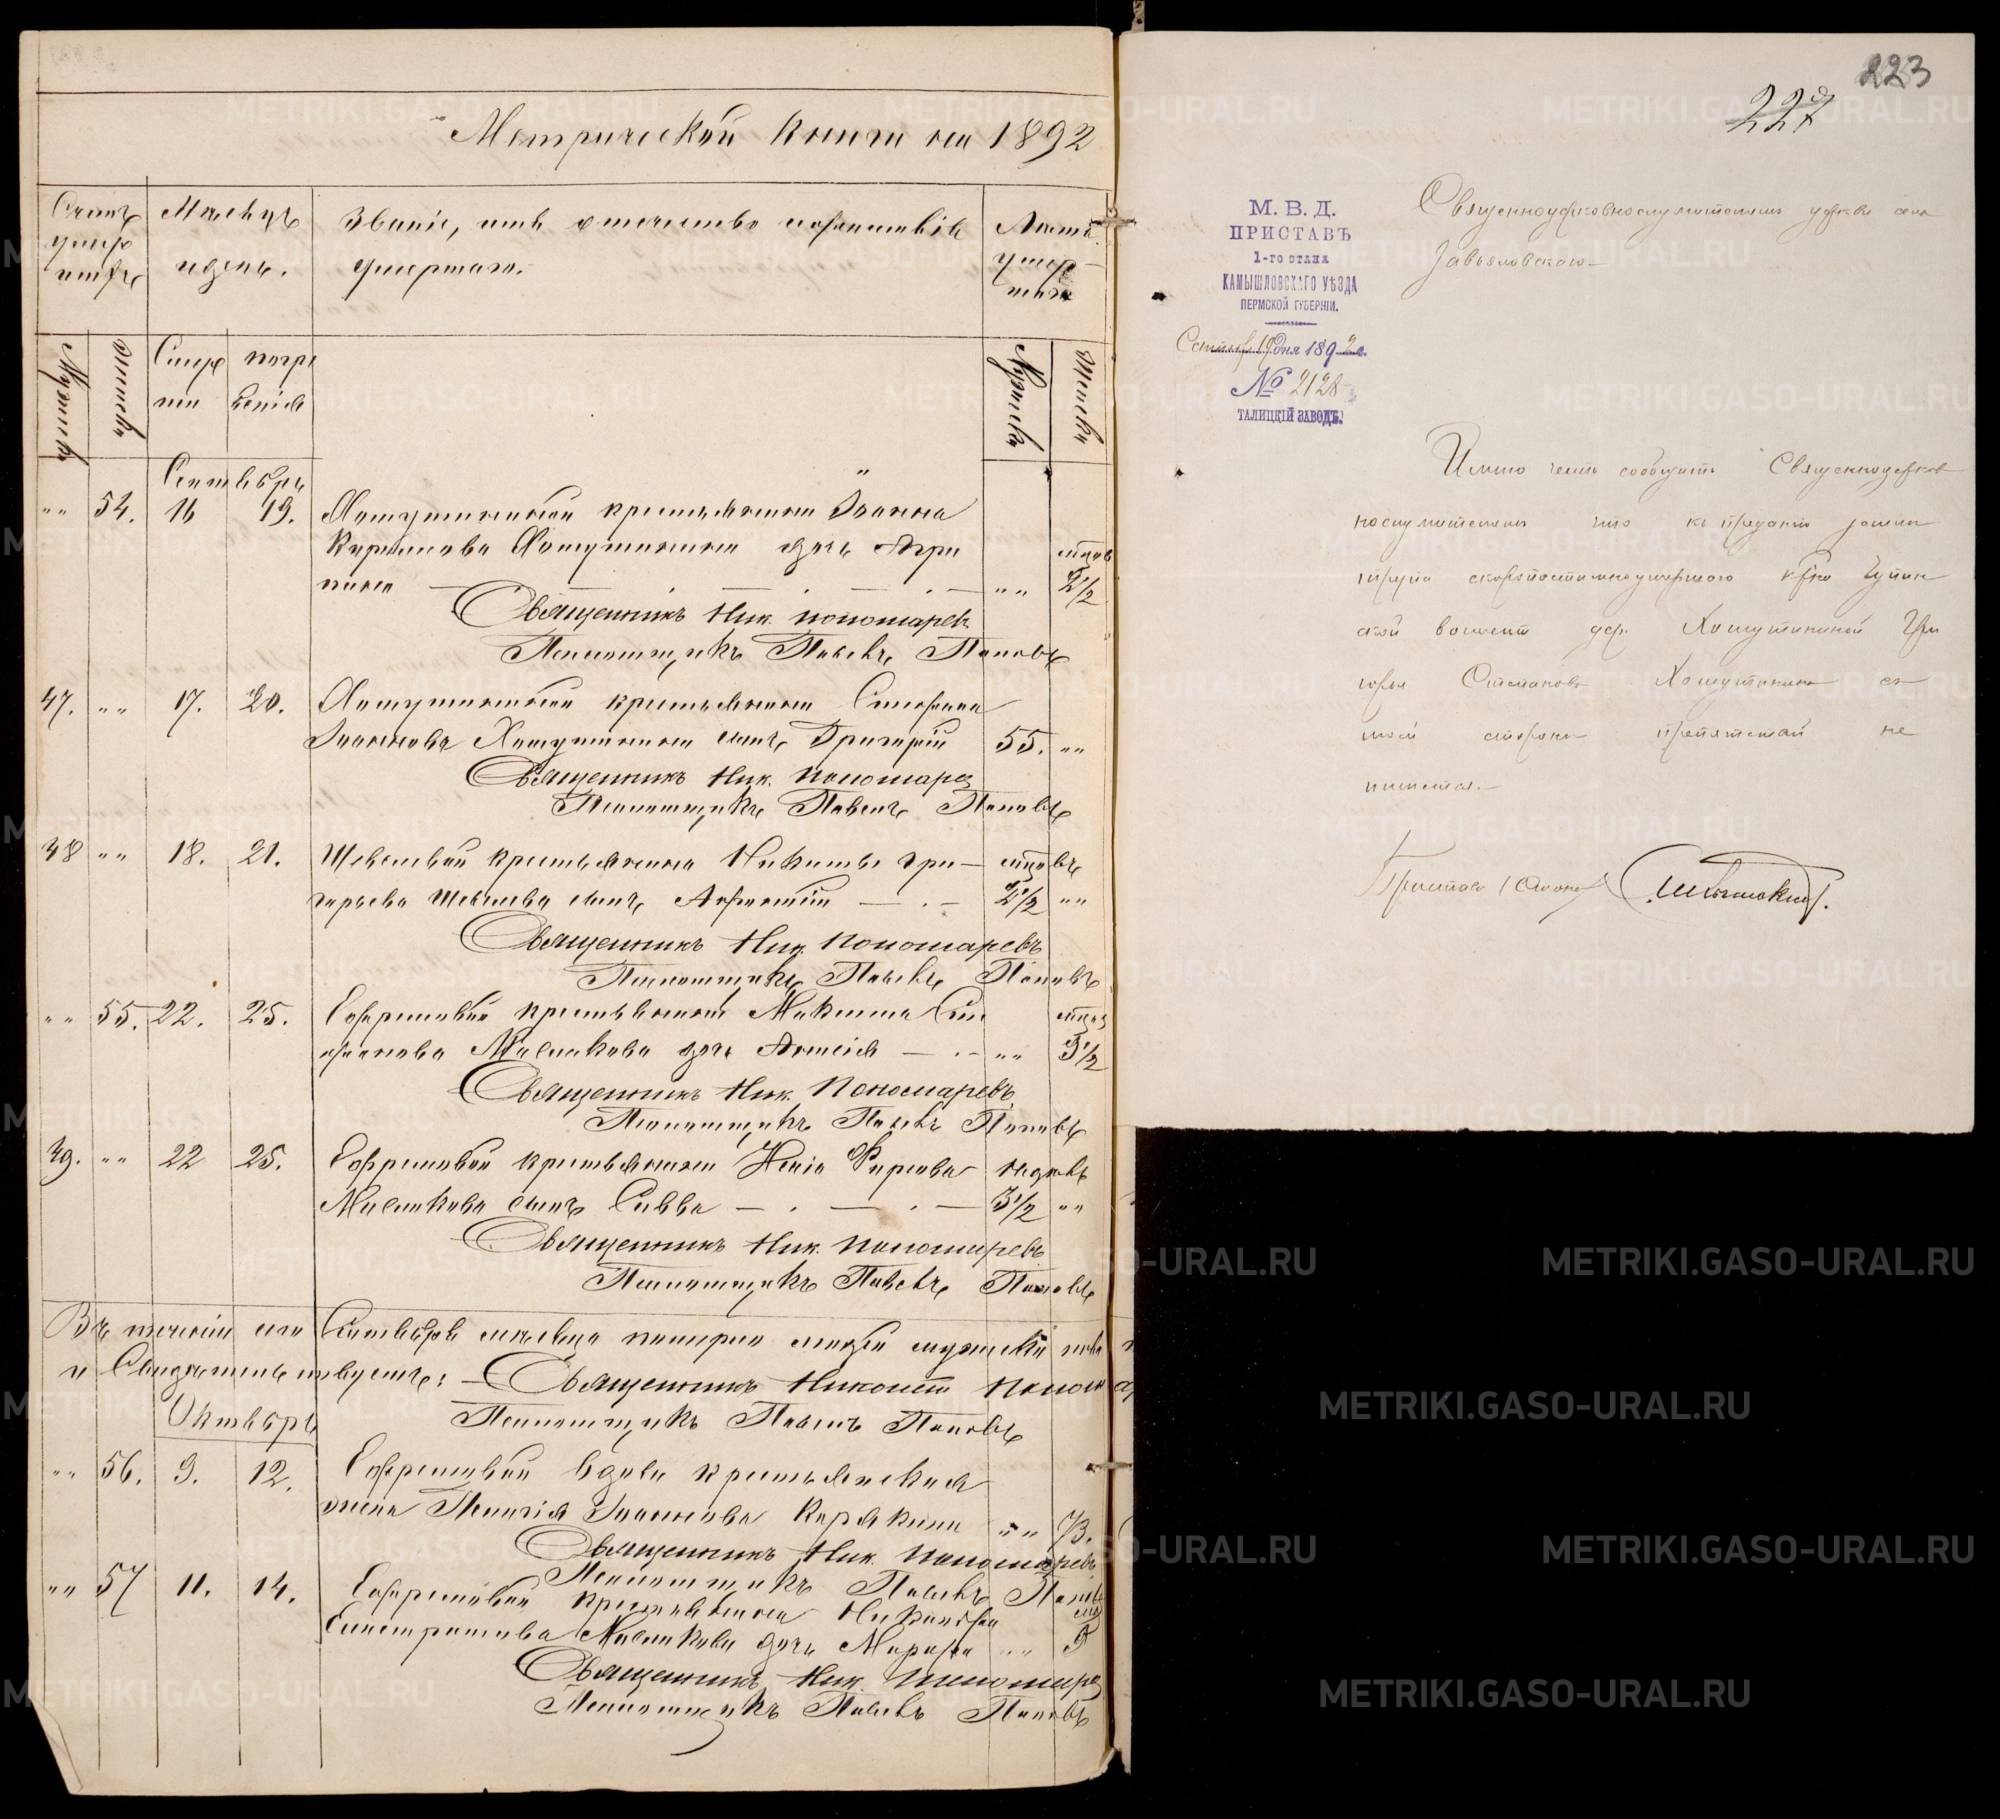 Метрической книги на 1892
Счетъ умершихъ
Мѣсяцъ и день.
Званіе, имя отчество и фамилія умершаго.
Лѣта умершаго
Мужеска
Женска
Смерти
погребенія
Мужеска
Женска
Сентябрь
" " 54. 16 19. Хомутининой крестьянина Іоанна
Хомутинина дочь Агри
пина — " " 2 1/2
Священникъ Ник. Пономаревъ
Псаломщикъ Павелъ Поповъ
47. " " 17. 20. Хомутининой крестьянина Стефана
Іоаннова Хомутинина сынъ Григорій 55. " "
Священникъ Ник. Пономарев
Псаломщикъ Павелъ Поповъ
48 " " 18. 21. крестьянина Никиты Гри
горьева сынъ — 2 1/2 " "
Священникъ Ник. Пономаревъ
Псаломщикъ Павелъ Поповъ
" " 55. 22. 25. Ефремовой крестьянина Максима Сте
фанова Маслакова дочь Анисія — " " 3 1/2
Священникъ Ник. Пономаревъ
Псаломщикъ Павелъ Поповъ
49. " " 22 25. Ефремовой крестьянина Фирсова недѣль
Маслакова сынъ Савва — 3 1/2 " "
Священникъ Ник. Пономаревъ
Псаломщикъ Павелъ Поповъ
Въ теченіи Сентября мѣсяца
и Свидѣтельствуемъ: Священникъ
Псаломщикъ Павелъ Поповъ
Октябрь
" " 56. 9. 12. Ефремовой вдова крестьянская
жена Іоаннова Карякина " " 73.
Священникъ Ник. Пономаревъ
Псаломщикъ Павелъ Поповъ
" " 57 11. 14. Ефремовой крестьянина Никанора
Маслакова дочь " "
Священникъ Ник. Пономарев
Псаломщикъ Павелъ Поповъ
223
227
М. В. Д.
ПРИСТАВЪ
1-го стана
КАМЫШЛОВСКАГО УѢЗДА
ПЕРМСКОЙ ГУБЕРНІИ.
Сентября 19 дня 1892 г.
№ 2128
ТАЛИЦКІЙ ЗАВОДЪ.
Священноцерковнослужителямъ церкви села
Завьяловскаго
Имею честь сообщить Священноцерков
нослужителямъ что къ преданію землѣ
трупа скоропостижноумершаго кр-на
ской волости дер. Хомутининой Гри
горья Степанова Хомутинина съ
моей стороны препятствій не
имѣется.
Приставъ 1 Стана
METRIKI.GASO-URAL.RU